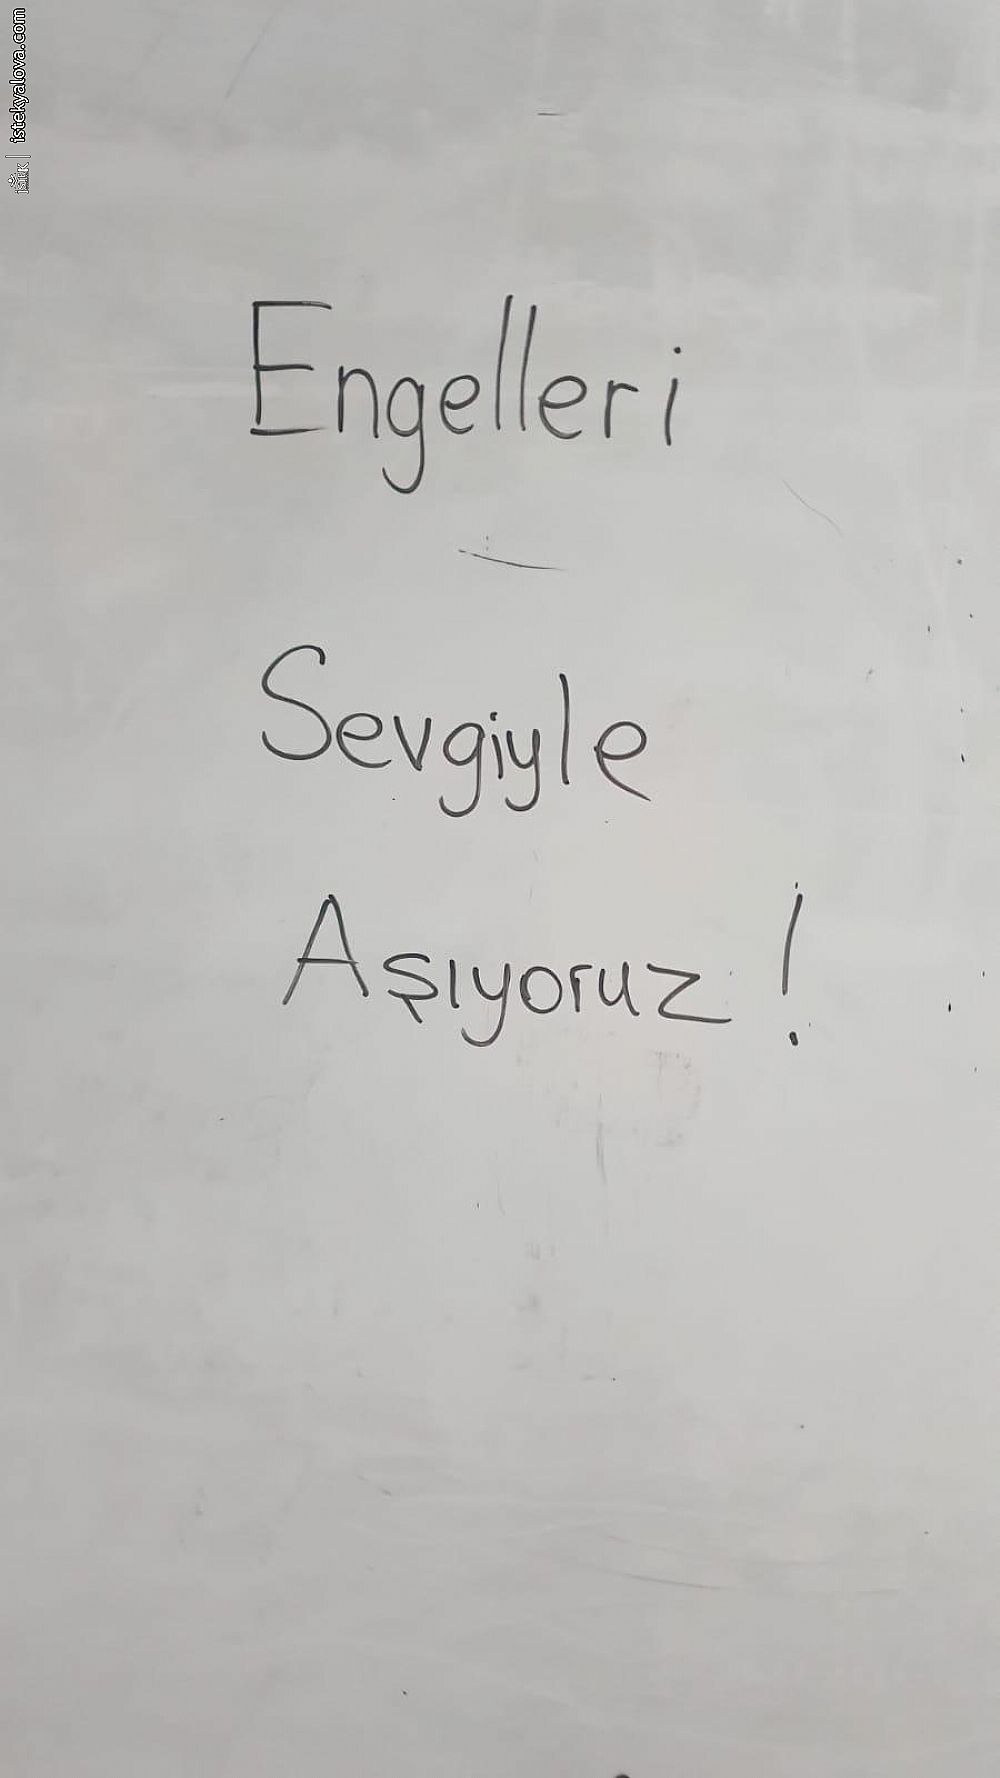 istekyalova.com
Engelleri
Sevgiyle
Aşıyoruz !